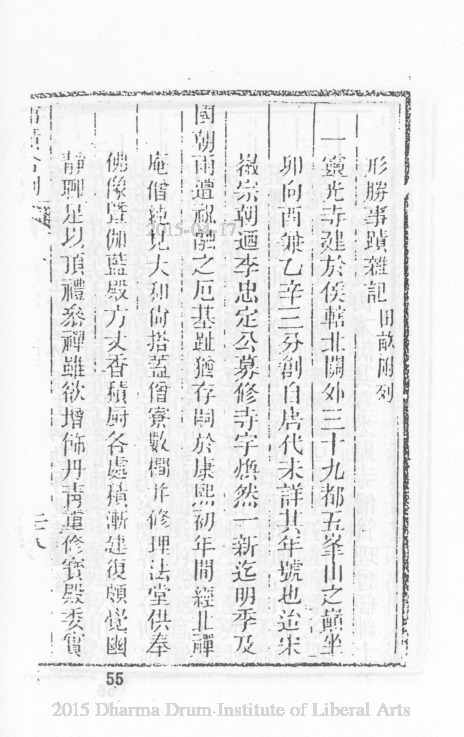 形勝事蹟雜記田畝附列
一靈光寺建於侯轄北關外三十九都五峯山之巔坐
卯向酉兼乙辛三分創自唐代未詳其年號也迨宋
徽宗朝迺李忠定公募修寺宇煥然一新迄明季及
國朝兩遭祝融之厄基趾猶存嗣於康熙初年間經北禪
庵僧純見大和尚搭蓋僧寮數橺并修理法堂供奉
佛像暨伽藍殿方丈香積厨各處積漸建復頗覺幽
靜輒足以頂禮叅禪雖欲增飾丹青重修寶殿委實
二八
55
2015-04-17
2015 Dharma Drum Institute of Liberal Arts